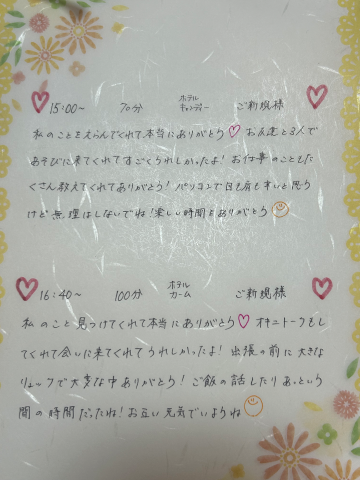 15:00～ 70分 ホテル キャンディー ご新規様
私のことをえらんでくれて本当にありがとう♡ お友達と3人で
あそびに来てくれてすごくうれしかったよ! お仕事のこともた
くさん教えてくれてありがとう! パソコンで目も肩も辛いと思う
けど無理はしないでね! 楽しい時間をありがとう
16:40～ 100分 ホテル カーム ご新規様
私のこと見つけてくれて本当にありがとう♡ オキニトークをし
てくれて会いに来てくれてうれしかったよ! 出張の前に大きな
リュックで大変な中ありがとう! ご飯の話したりあっという
間の時間だったね! お互い元気でいようね